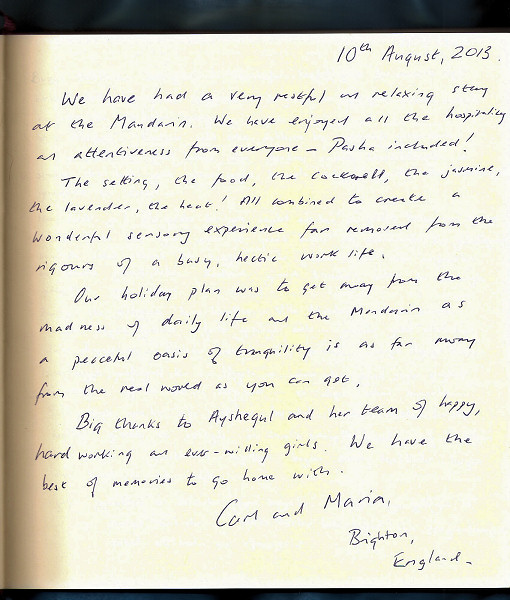 10th August, 2013.
We have had a very restful an relaxing stay
at the Mandarin. We have enjoyed all the hospitality
an attentiveness from everyone – Pasha included!
The setting, the food, the cockerell, the jasmine,
the lavender, the heat! All combined to create a
wonderful sensory experience far removed from the
rigours of a busy, hectic work life.
Our holiday plan was to get away from the
madness of daily life an the Mandarin as
a peaceful oasis of tranquility is as far away
from the real world as you can get.
Big thanks to Ayshegul and her team of happy,
hard working an ever-willing girls. We have the
best of memories to go home with.
Carl and Maria,
Brighton,
England.